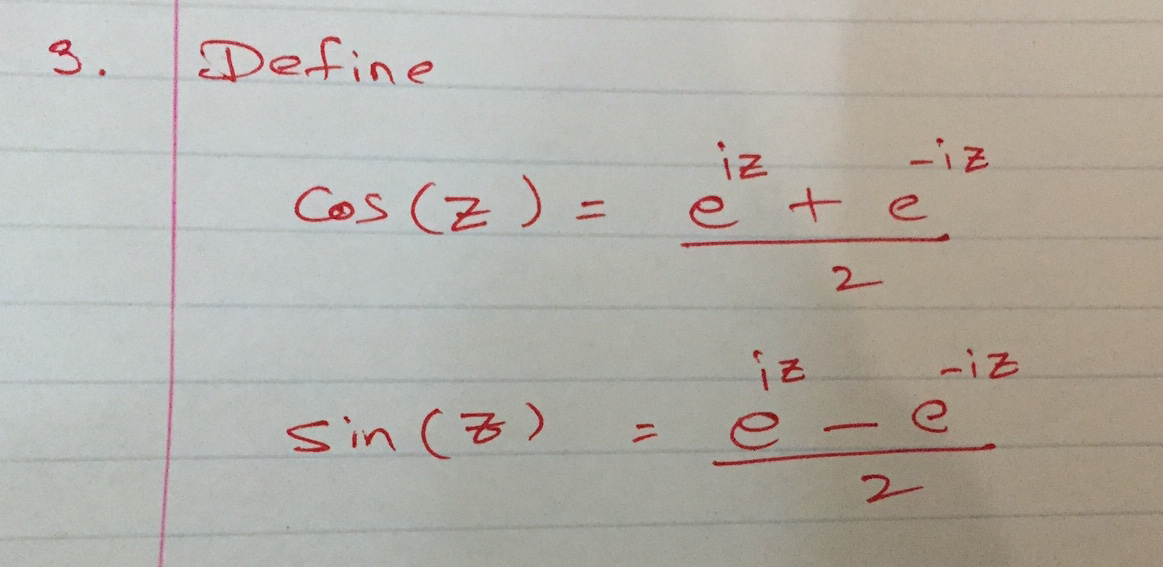 3. Define
cos(z) = \frac{e^{iz} + e^{-iz}}{2}
sin(z) = \frac{e^{iz} - e^{-iz}}{2}